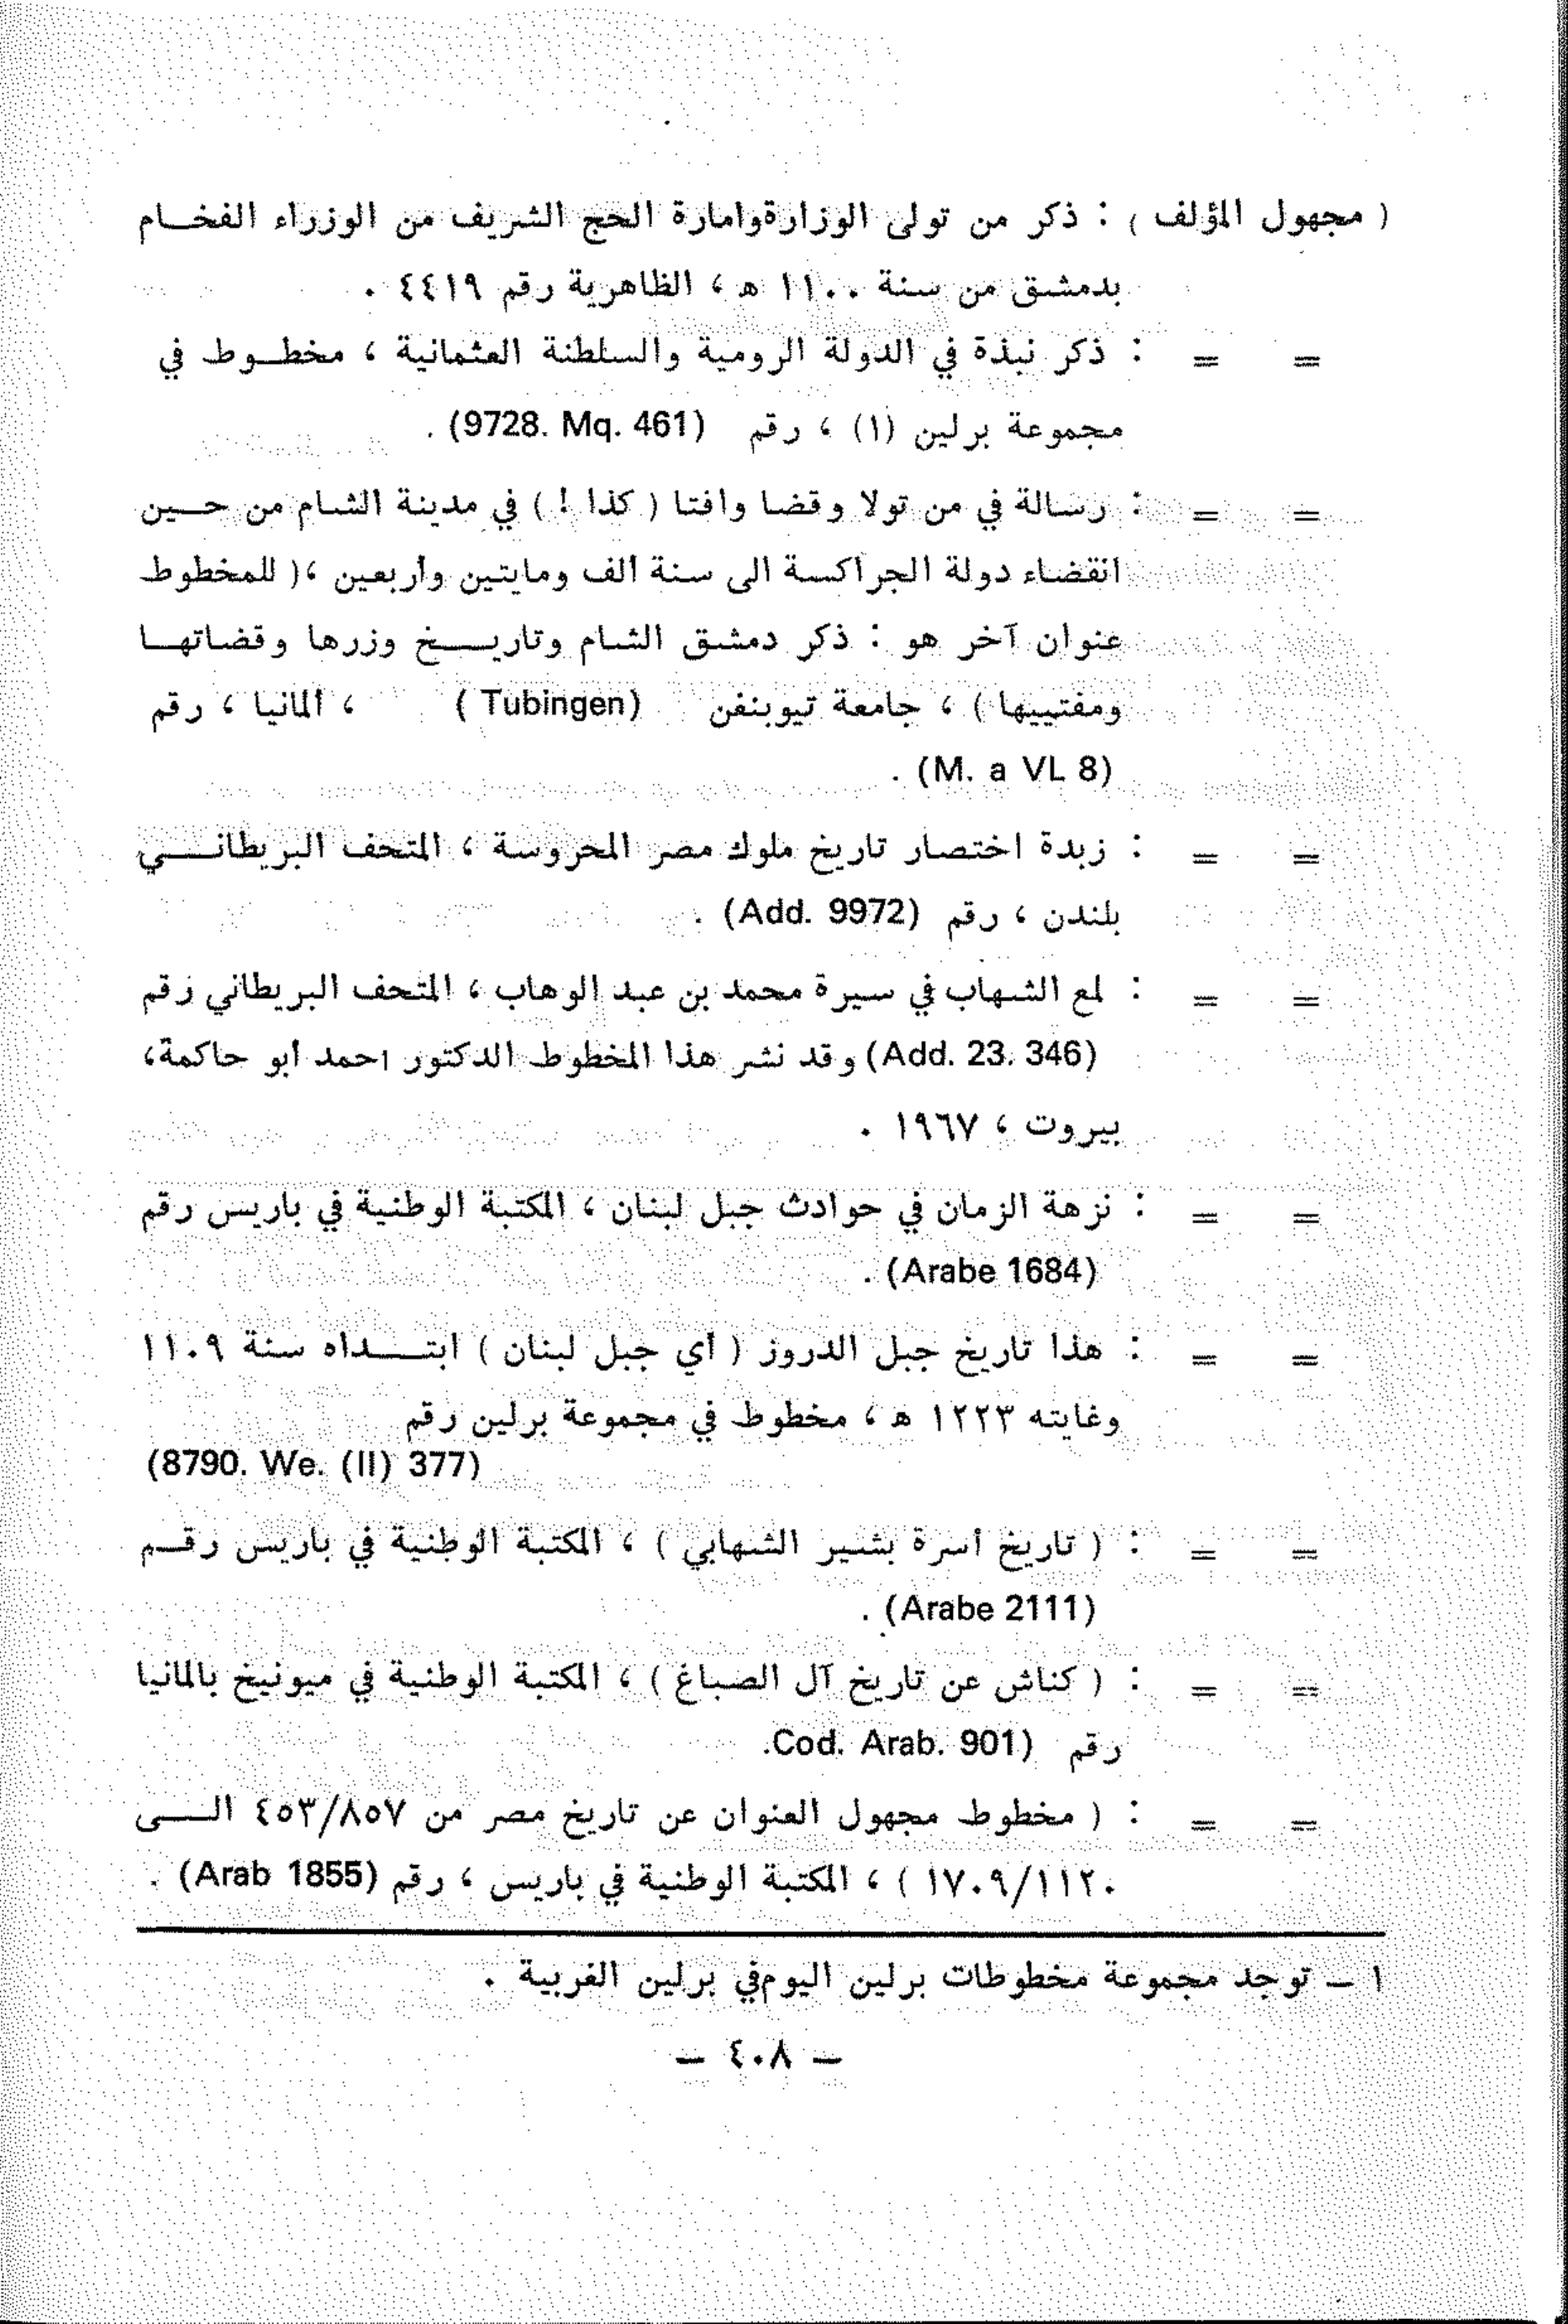 ( مجهول المؤلف ) : ذكر من تولى الوزارة وامارة الحج الشريف من الوزراء الفخام
بدمشق من سنة ١١٠٠ هـ ، الظاهرية رقم ٤٤١٩ .
= = : ذكر نبذة في الدولة الرومية والسلطنة العثمانية ، مخطوط في
مجموعة برلين (١) ، رقم (9728. Mq. 461) .
= = : رسالة في من تولا وقضا وافتا ( كذا ! ) في مدينة الشام من حين
انقضاء دولة الجراكسة الى سنة ألف ومايتين وأربعين ،( للمخطوط
عنوان آخر هو : ذكر دمشق الشام وتاريخ وزرها وقضاتها
ومفتييها ) ، جامعة تيوبنفن ( Tubingen) ، ألمانيا ، رقم
(M. a VL 8) .
= = : زبدة اختصار تاريخ ملوك مصر المحروسة ، المتحف البريطاني
بلندن ، رقم (Add. 9972) .
= = : لمع الشهاب في سيرة محمد بن عبد الوهاب ، المتحف البريطاني رقم
(Add. 23. 346) وقد نشر هذا المخطوط الدكتور احمد أبو حاكمة،
بيروت ، ١٩٦٧ .
= = : نزهة الزمان في حوادث جبل لبنان ، المكتبة الوطنية في باريس رقم
(Arabe 1684) .
= = : هذا تاريخ جبل الدروز ( أي جبل لبنان ) ابتداه سنة ١١٠٩
وغايته ١٢٢٣ هـ ، مخطوط في مجموعة برلين رقم
(8790. We. (II) 377)
= = : ( تاريخ أسرة بشير الشهابي ) ، المكتبة الوطنية في باريس رقم
(Arabe 2111) .
= = : ( كناش عن تاريخ آل الصباغ ) ، المكتبة الوطنية في ميونيخ بالمانيا
رقم (Cod. Arab. 901.
= = : ( مخطوط مجهول العنوان عن تاريخ مصر من ٤٥٣/٨٥٧ الى
١٧٠٩/١١٢٠ ) ، المكتبة الوطنية في باريس ، رقم (Arab 1855) .
١ — توجد مجموعة مخطوطات برلين اليوم في برلين الغربية .
— ٤٠٨ —